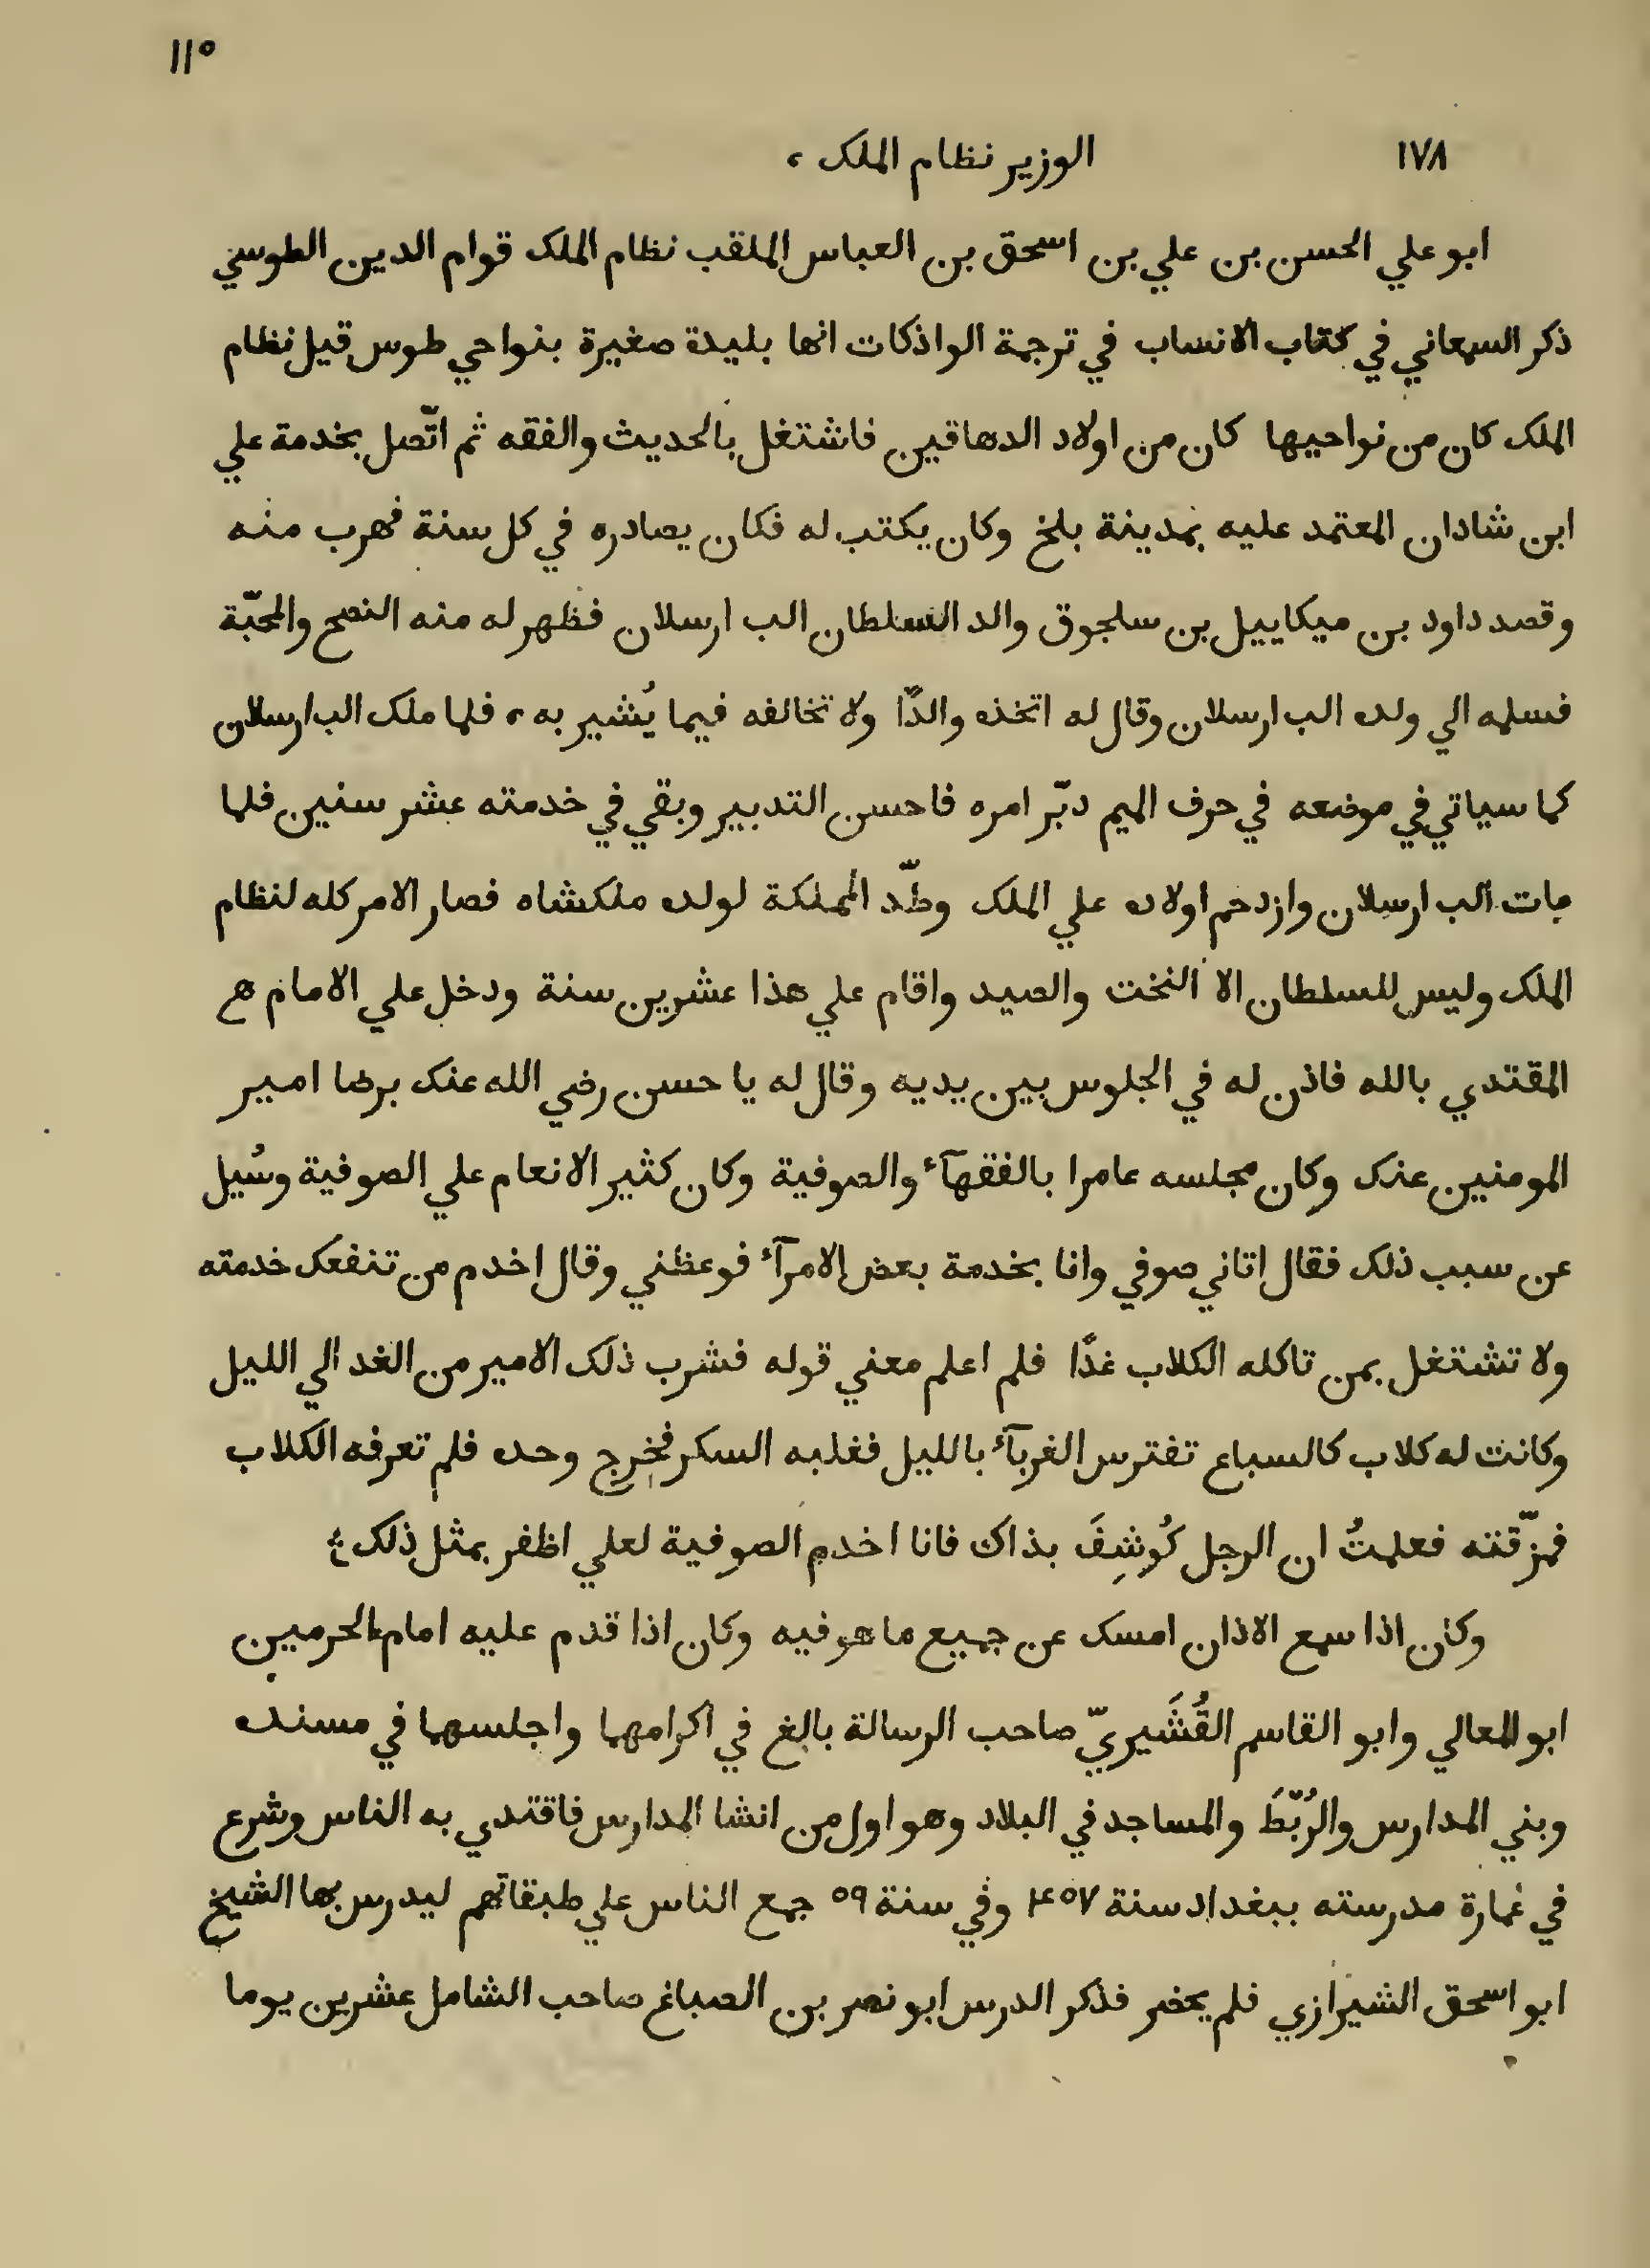 ١١٥
١٧٨ الوزير نظام الملك ،
ابو علي الحسن بن علي بن اسحق بن العباس الملقب نظام الملك قوام الدين الطوسي
ذكر السمعاني في كتاب الانساب في ترجمة الواذكات انها بليدة صغيرة بنواحي طوس قيل نظام
الملك كان من نواحيها كان من اولاد الدهاقين فاشتغل بالحديث والفقه ثم اتّصل بخدمة علي
ابن شادان المعتمد عليه بمدينة بلخ وكان يكتب له فكان يصادره في كل سنة فهرب منه
وقصد داود بن ميكاييل بن سلجوق والد السلطان الب ارسلان فظهر له منه النصح والمحبّة
فسلمه الي ولده الب ارسلان وقال له اتخذه والدًا ولا تخالفه فيما يُشير به ، فلما ملك الب ارسلان
كما سياتي في موضعه في حرف الميم دبّر امره فاحسن التدبير وبقي في خدمته عشر سنين فلما
مات الب ارسلان وازدحم اولاده علي الملك وطّد المملكة لولده ملكشاه فصار الامر كله لنظام
الملك وليس للسلطان الا التخت والصيد واقام علي هذا عشرين سنة ودخل علي الامام
المقتدي بالله فاذن له في الجلوس بين يديه وقال له يا حسن رضي الله عنك برضا امير
المومنين عنك وكان مجلسه عامرا بالفقهآء والصوفية وكان كثير الانعام علي الصوفية وسُيل
عن سبب ذلك فقال اتاني صوفي وانا بخدمة بعض الامرآء فوعظني وقال اخدم من تنفعك خدمته
ولا تشتغل بمن تاكله الكلاب غدًا فلم اعلم معني قوله فشرب ذلك الامير من الغد الي الليل
وكانت له كلاب كالسباع تفترس الغربآء بالليل فغلبه السكر فخرج وحده فلم تعرفه الكلاب
فمزّقته فعلمتُ ان الرجل كُوشِفَ بذاك فانا اخدم الصوفية لعلي اظفر بمثل ذلك ؛
وكان اذا سمع الاذان امسك عن جميع ما هو فيه وكان اذا قدم عليه امام الحرمين
ابو المعالي وابو القاسم القُشَيريّ صاحب الرسالة بالغ في اكرامهما واجلسهما في مسنده
وبني المدارس والرُبّطَ والمساجد في البلاد وهو اول من انشا المدارس فاقتدي به الناس وشرع
في عمارة مدرسته ببغداد سنة ۴٥٧ وفي سنة ٥٩ جمع الناس علي طبقاتهم ليدرس بها الشيخ
ابو اسحق الشيرازي فلم يحضر فذكر الدرس ابو نصر بن الصباغ صاحب الشامل عشرين يوما